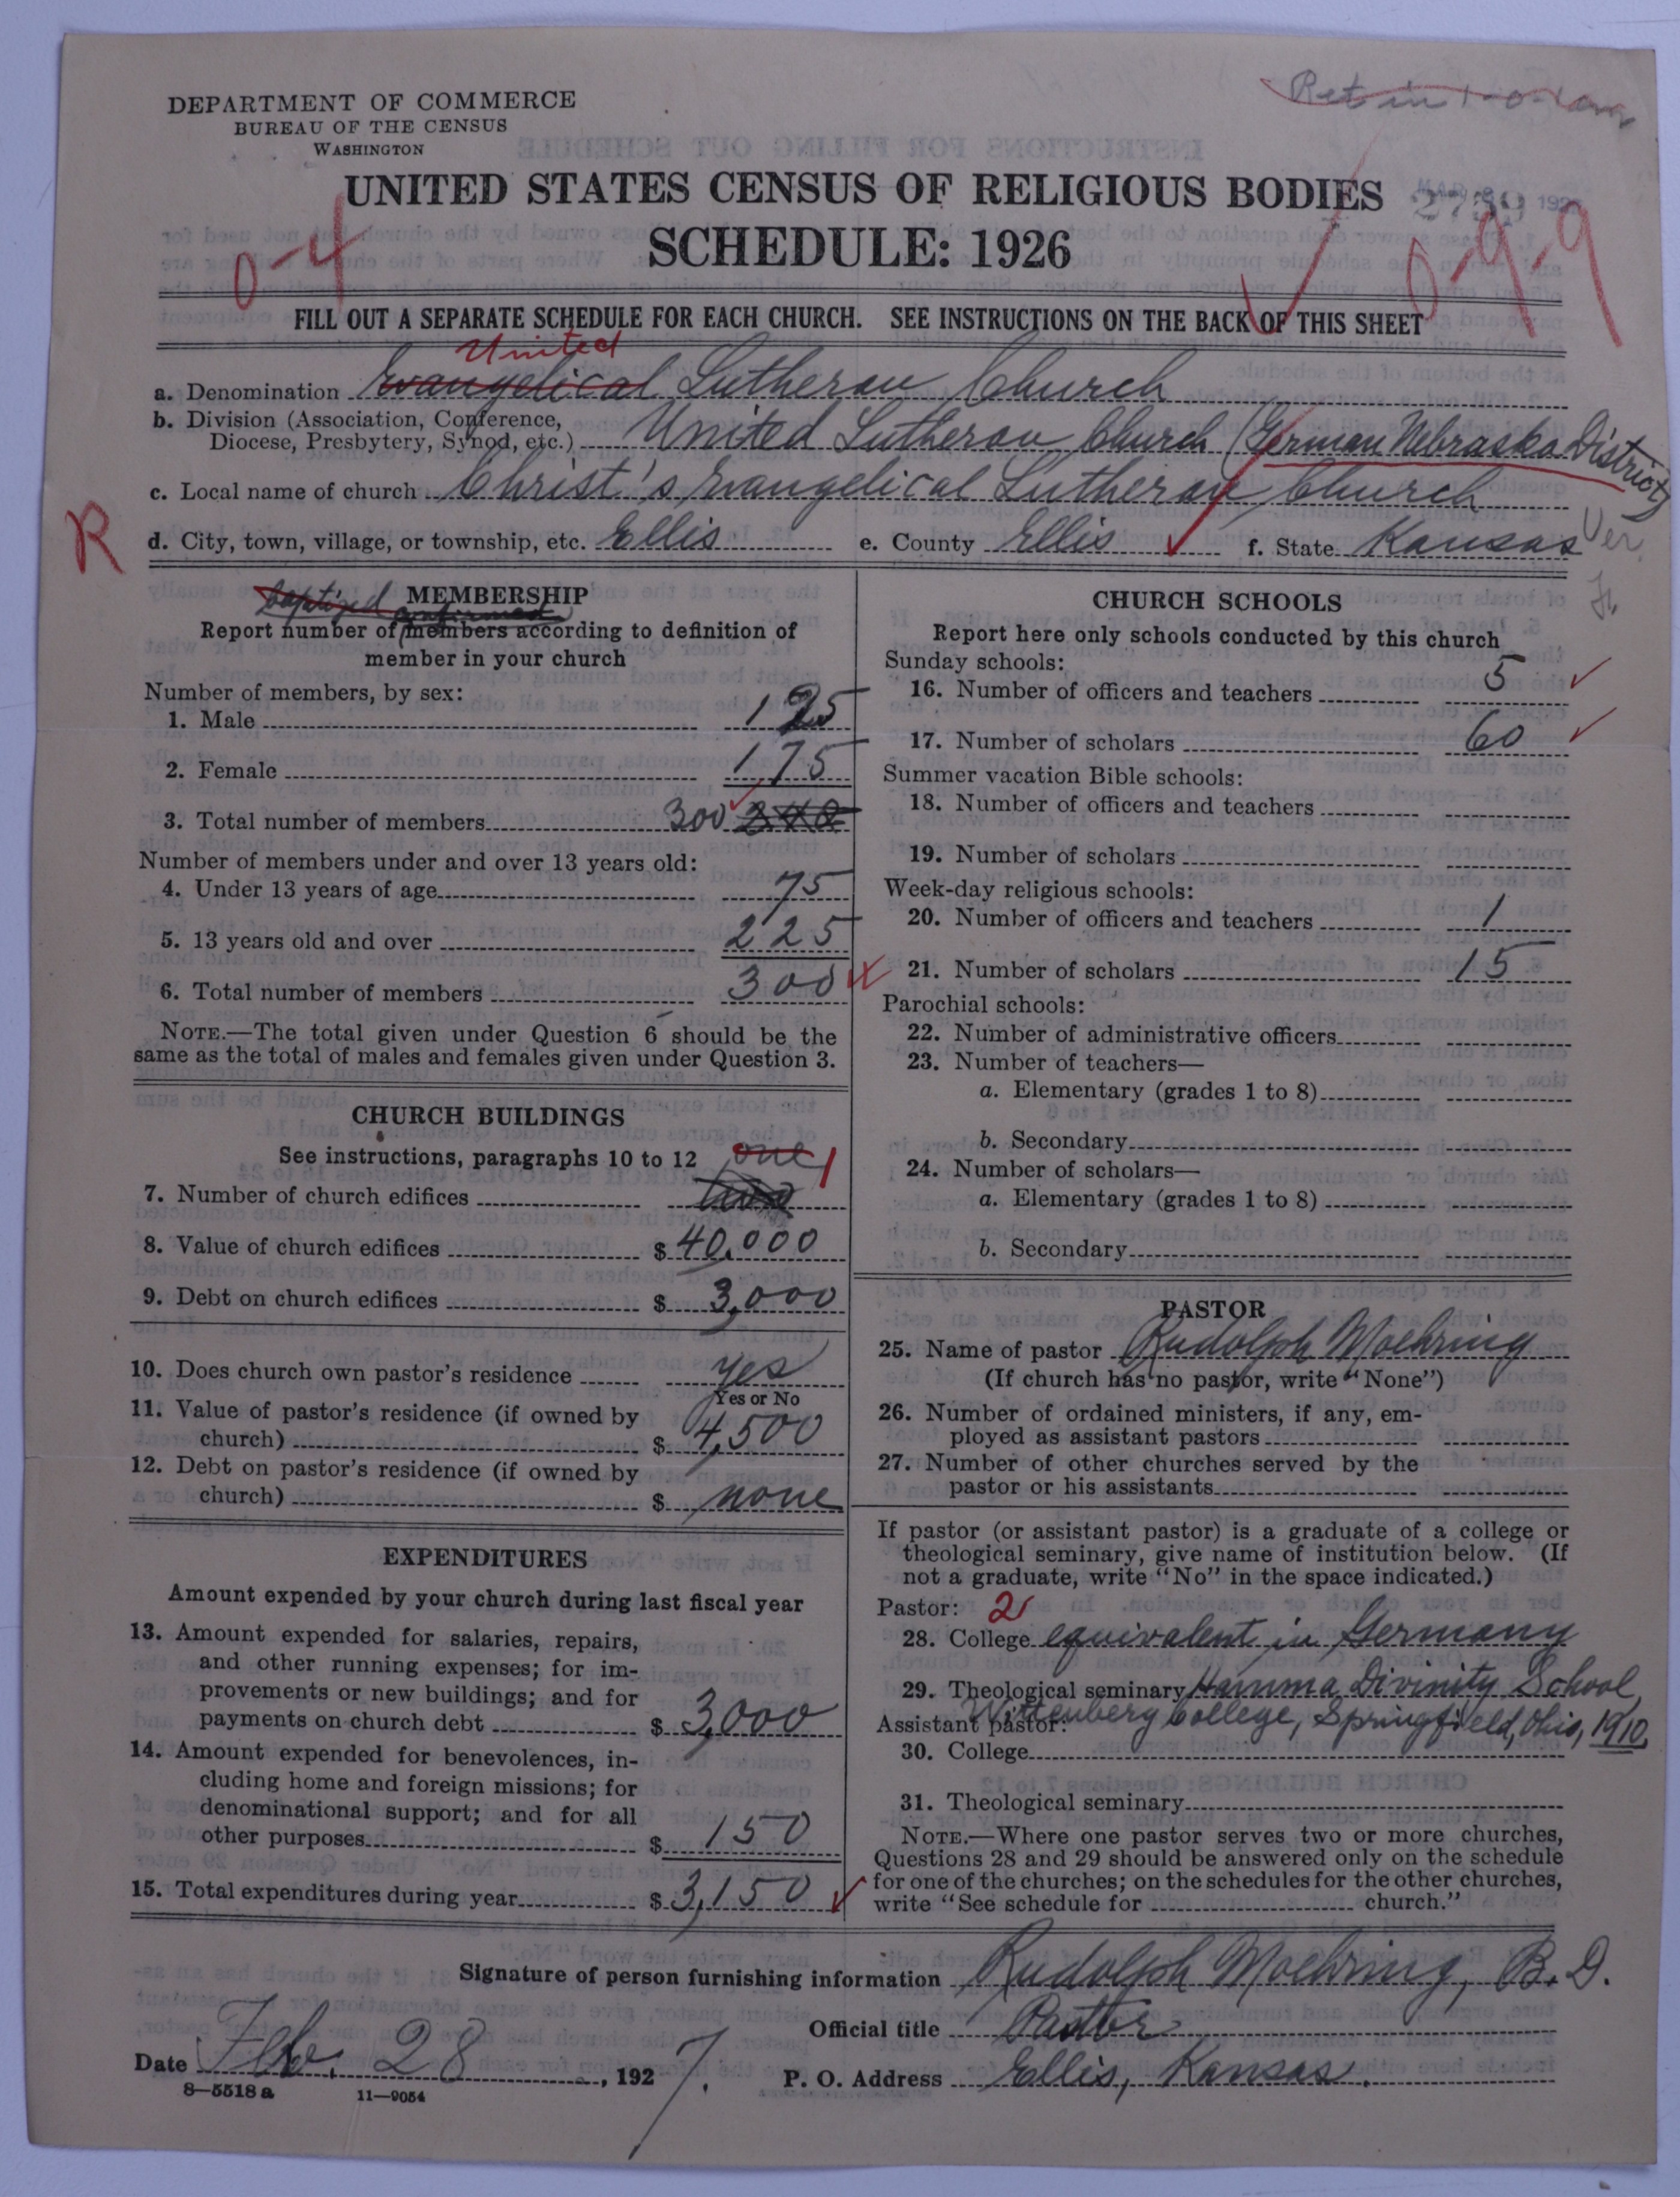 DEPARTMENT OF COMMERCE
BUREAU OF THE CENSUS
WASHINGTON
UNITED STATES CENSUS OF RELIGIOUS BODIES
SCHEDULE: 1926
0-4
0-9-9
FILL OUT A SEPARATE SCHEDULE FOR EACH CHURCH. SEE INSTRUCTIONS ON THE BACK OF THIS SHEET
United
a. Denomination Evangelical Lutheran Church
b. Division (Association, Conference,
Diocese, Presbytery, Synod, etc.) United Lutheran Church (German Nebraska District)
c. Local name of church Christ's Evangelical Lutheran Church
R
d. City, town, village, or township, etc. Ellis e. County Ellis f. State Kansas
Ver.
MEMBERSHIP
baptized confirmed
Report number of members according to definition of
member in your church
Number of members, by sex:
1. Male 125
2. Female 175
3. Total number of members 300
Number of members under and over 13 years old:
4. Under 13 years of age 75
5. 13 years old and over 225
6. Total number of members 300
NOTE.—The total given under Question 6 should be the
same as the total of males and females given under Question 3.
CHURCH BUILDINGS
See instructions, paragraphs 10 to 12 one 1
7. Number of church edifices two
8. Value of church edifices $ 40,000
9. Debt on church edifices $ 3,000
10. Does church own pastor's residence yes
Yes or No
11. Value of pastor's residence (if owned by
church) $ 4,500
12. Debt on pastor's residence (if owned by
church) $ none
EXPENDITURES
Amount expended by your church during last fiscal year
13. Amount expended for salaries, repairs,
and other running expenses; for im-
provements or new buildings; and for
payments on church debt $ 3,000
14. Amount expended for benevolences, in-
cluding home and foreign missions; for
denominational support; and for all
other purposes $ 150
15. Total expenditures during year $ 3,150
CHURCH SCHOOLS
Report here only schools conducted by this church
Sunday schools:
16. Number of officers and teachers 5
17. Number of scholars 60
Summer vacation Bible schools:
18. Number of officers and teachers
19. Number of scholars
Week-day religious schools:
20. Number of officers and teachers 1
21. Number of scholars 15
Parochial schools:
22. Number of administrative officers
23. Number of teachers—
a. Elementary (grades 1 to 8)
b. Secondary
24. Number of scholars—
a. Elementary (grades 1 to 8)
b. Secondary
PASTOR
25. Name of pastor Rudolph Moehring
(If church has no pastor, write "None")
26. Number of ordained ministers, if any, em-
ployed as assistant pastors
27. Number of other churches served by the
pastor or his assistants
If pastor (or assistant pastor) is a graduate of a college or
theological seminary, give name of institution below. (If
not a graduate, write "No" in the space indicated.)
Pastor: 2
28. College equivalent in Germany
29. Theological seminary Hamma Divinity School,
Wittenberg College, Springfield, Ohio, 1910
Assistant pastor:
30. College
31. Theological seminary
NOTE.—Where one pastor serves two or more churches,
Questions 28 and 29 should be answered only on the schedule
for one of the churches; on the schedules for the other churches,
write "See schedule for church."
Signature of person furnishing information Rudolph Moehring, B. D.
Official title Pastor
Date Feb. 28, 1927. P. O. Address Ellis, Kansas.
8—5518 a 11—9054